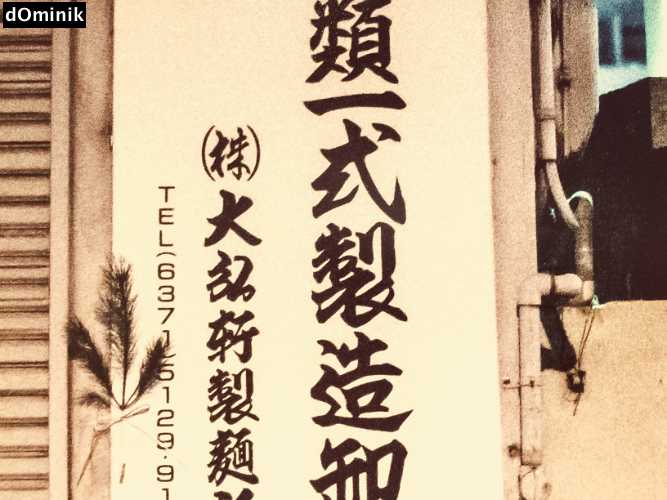 dOminik
類一式製造卸
㈱大弘軒製麺
TEL(6371)5129・91